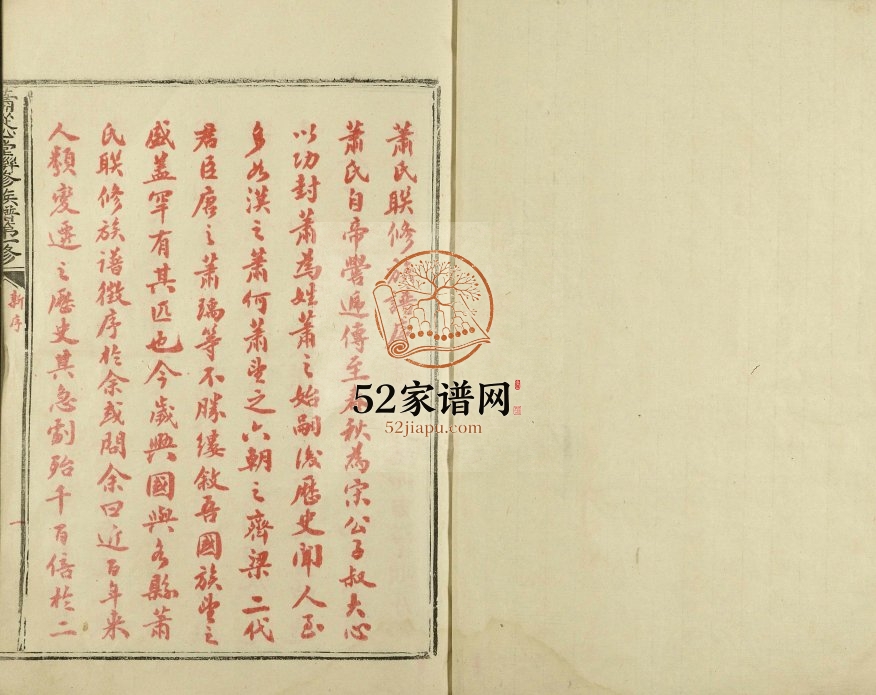 蕭氏聯修族譜序
蕭氏自帝嚳遞傳至春秋為宋公子叔大心
以功封蕭為姓蕭之始嗣後歷史聞人至
多如漢之蕭何蕭望之六朝之齊梁二代
君臣唐之蕭瑀等不勝縷敘吾國族望之
盛蓋罕有其匹也今歲興國與各縣蕭
氏聯修族譜徵序於余或問余曰近百年來
人類變遷之歷史其急劇殆千百倍於二
聯修族譜第一修
新序
一
52家谱网
52jiapu.com